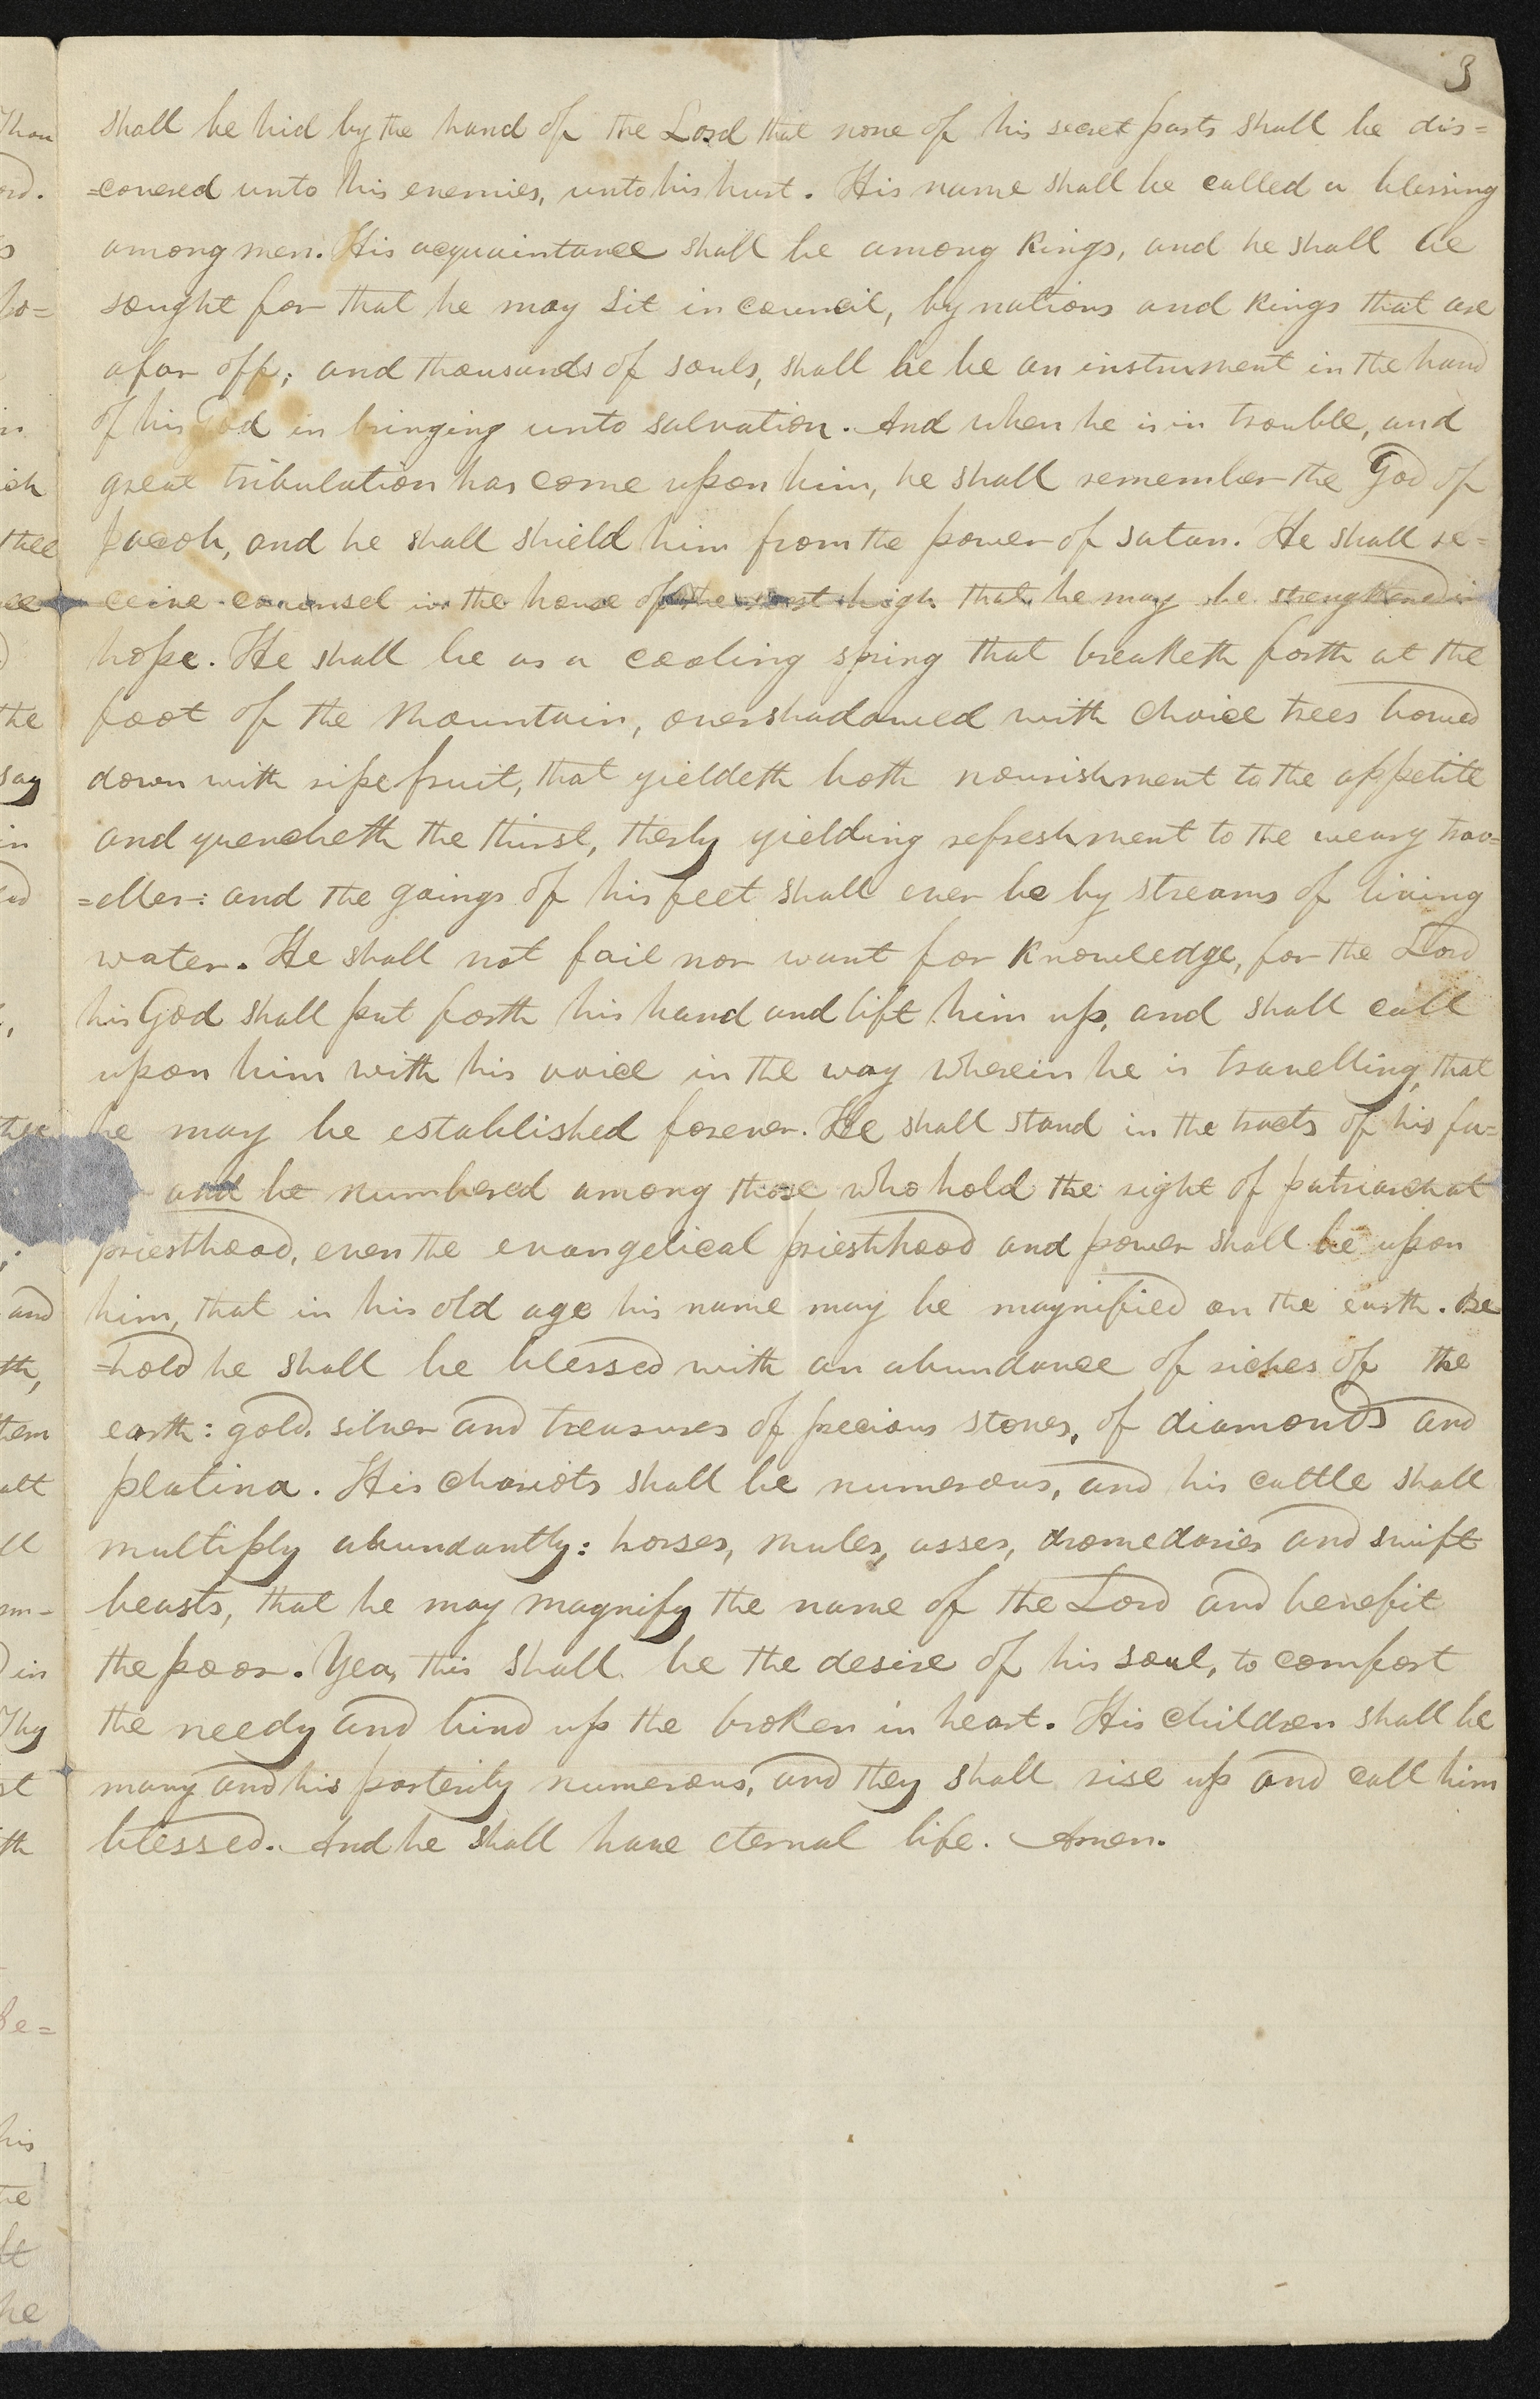 3
shall be hid by the hand of the Lord that none of his secret parts shall be dis=
=covered unto his enemies, unto his hurt. His name shall be called a blessing
among men. His acquaintance shall be among Kings, and he shall be
sought for that he may sit in council, by nations and Kings that are
afar off; and thousands of souls, shall he be an instrument in the hand
of his God in bringing unto salvation. And when he is in trouble, and
great tribulation has come upon him, he shall remember the God of
Jacob, and he shall shield him from the power of satan. He shall re=
ceive counsel in the house of the most high that he may be strengthened in
hope. He shall be as a cooling spring that breaketh forth at the
foot of the Mountain, overshadowed with choice trees bowed
down with ripe fruit, that yieldeth both nourishment to the appetite
and quencheth the thirst, therby yielding refreshment to the weary trav=
=eller: and the goings of his feet shall ever be by streams of living
water. He shall not fail nor want for Knowledge, for the Lord
his God shall put forth his hand and lift him up, and shall call
upon him with his voice in the way wherein he is travelling, that
he may be established forever. He shall stand in the tracts of his fa=
and be numbered among those who hold the right of patriarchal
priesthood, even the evangelical priesthood and power shall be upon
him, that in his old age his name may be magnified on the earth. Be
=hold he shall be blessed with an abundance of riches of the
earth: gold, silver and treasures of precious stones, of diamonds and
platina. His chariots shall be numerous, and his cattle shall
multiply abundantly: horses, mules, asses, dromedaries and swift
beasts, that he may magnify the name of the Lord and benefit
the poor. Yea, this shall be the desire of his soul, to comfort
the needy and bind up the broken in heart. His children shall be
many and his posterity numerous, and they shall rise up and call him
blessed. And he shall have eternal life. Amen.